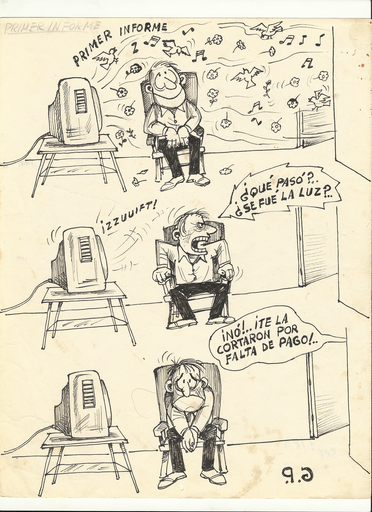 PRIMER INFORME
PRIMER INFORME
¿QUÉ PASÓ?..
¿SE FUE LA LUZ?..
¡ZZUUIFT!
¡NO!.. ¡TE LA
CORTARON POR
FALTA DE PAGO!..
G.P.